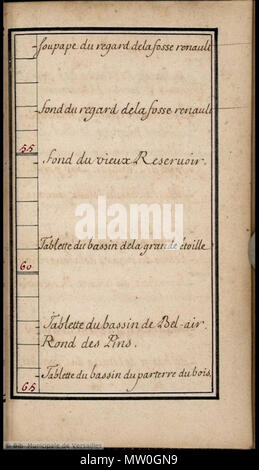 soupape du regard de la fosse renault
fond du regard de la fosse renault
55
fond du vieux Reservoir.
Tablette du bassin de la grande étoille
60
Tablette du bassin de Bel-air.
Rond des Pins.
Tablette du bassin du parterre du bois
65
© Bib. Municipale de Versailles
alamy
Image ID: MW0GN9
www.alamy.com